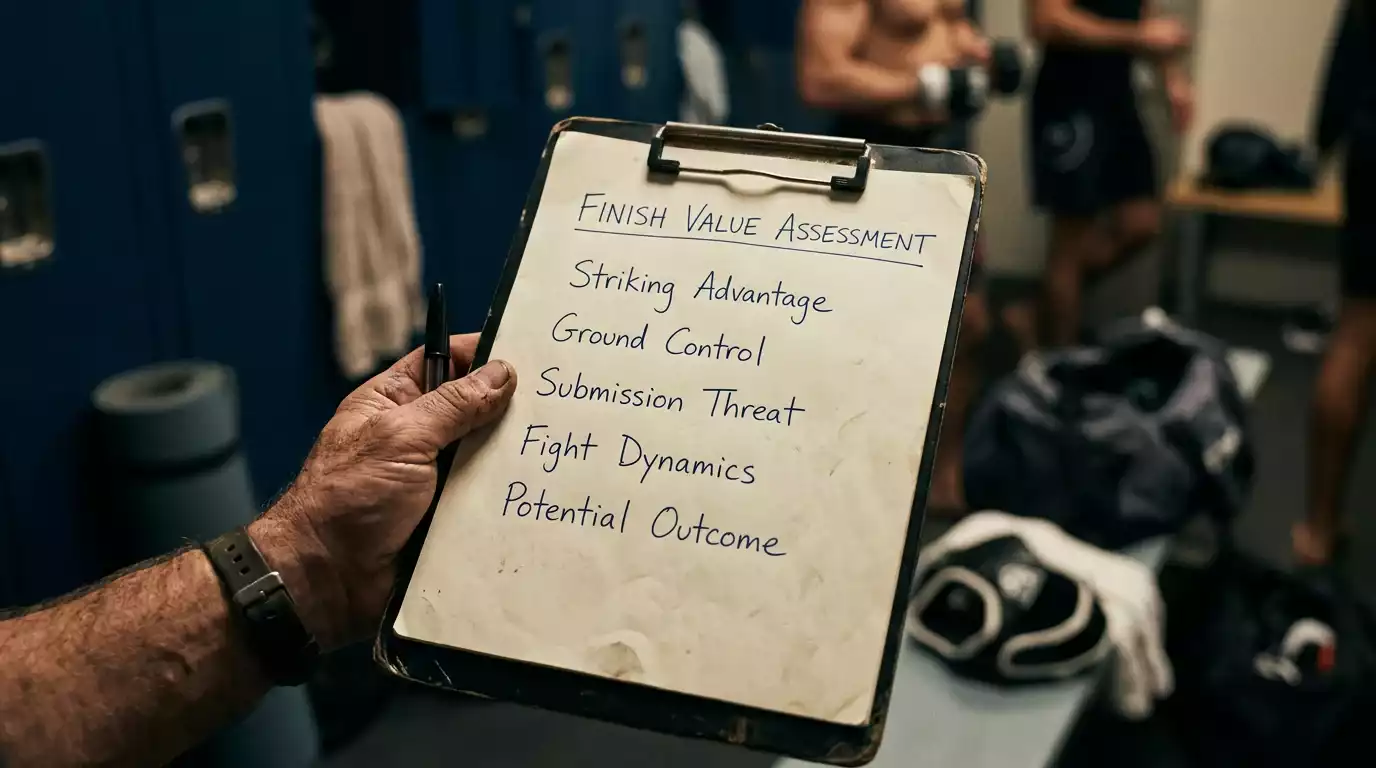 FINISH VALUE ASSESSMENT
Striking Advantage
Ground Control
Submission Threat
Fight Dynamics
Potential Outcome